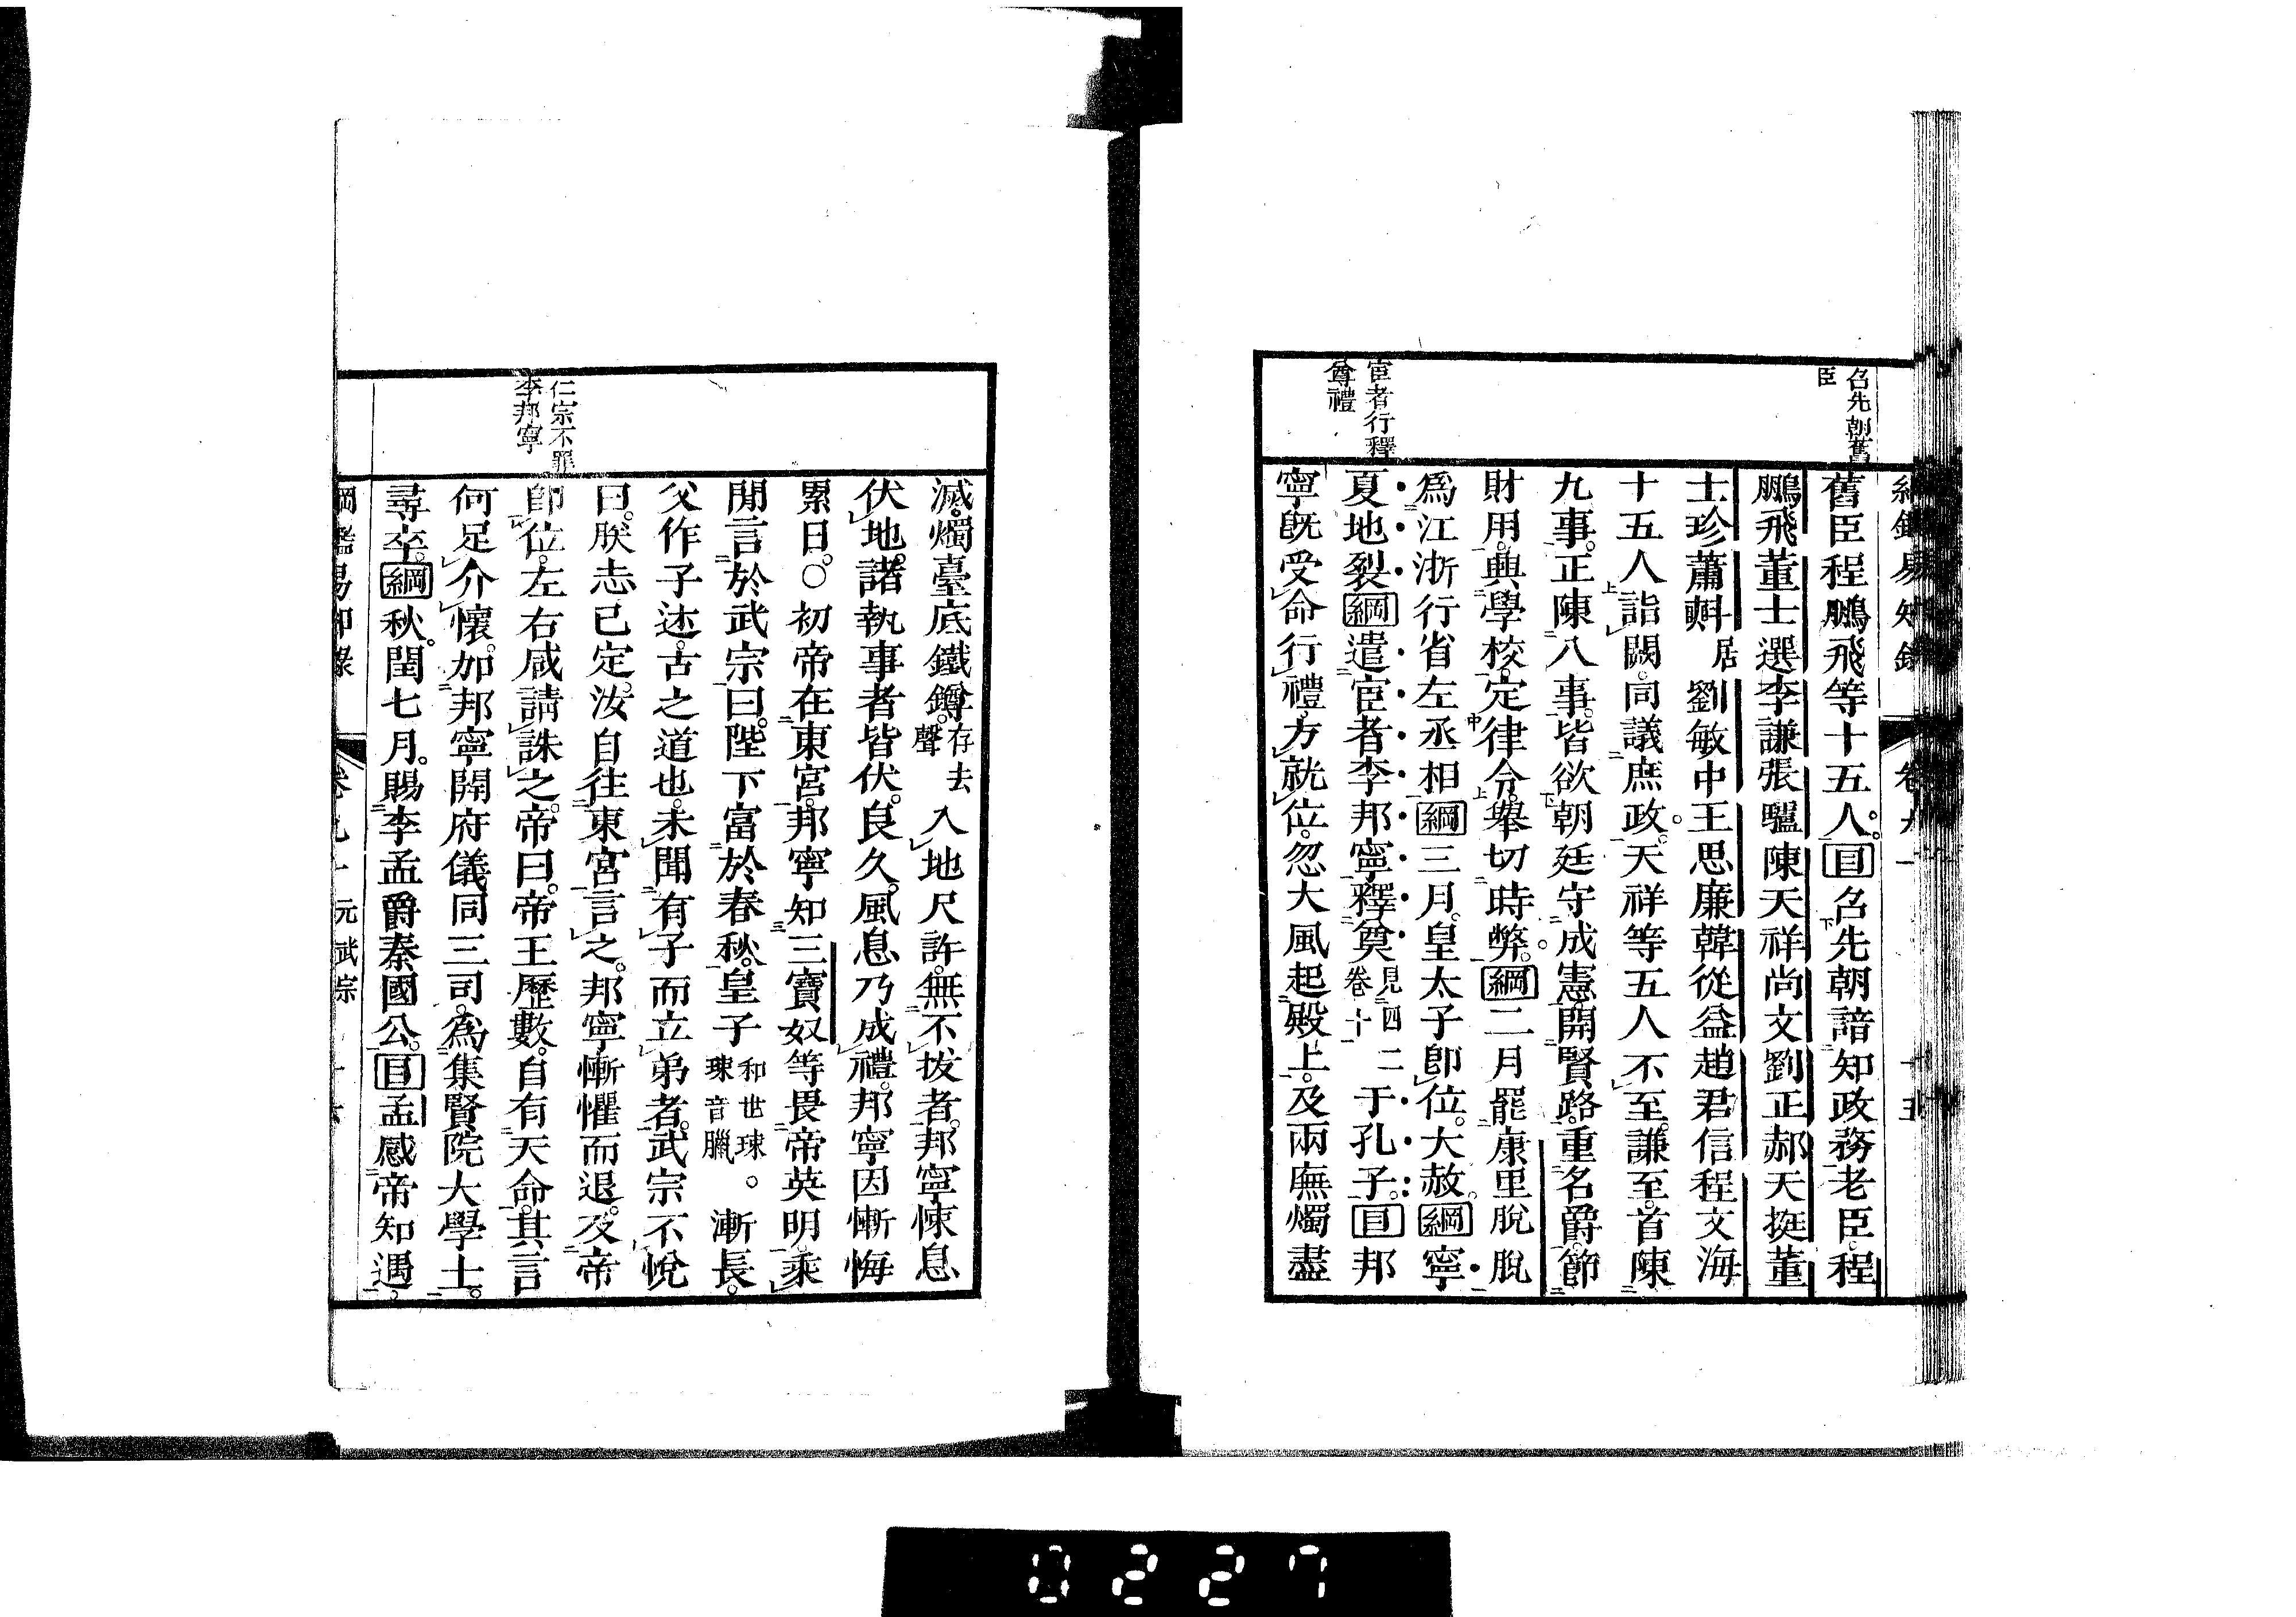 召先朝舊
臣
舊臣程鵬飛等十五人。目召先朝諳知政務老臣。程
鵬飛董士選李謙張驢陳天祥尚文劉正郝天挺董
士珍蕭𣂏居劉敏中王思廉韓從益趙君信程文海
十五人詣闕。同議庶政。天祥等五人不至。謙至。首陳
九事。正陳八事。皆欲朝廷守成憲。開賢路。重名爵。節
財用。興學校。定律令。舉切時弊。綱二月罷康里脫脫
爲江浙行省左丞相綱三月。皇太子卽位。大赦。綱寧
宦者行釋
奠禮
夏地裂綱遣宦者李邦寧釋奠見四卷十二于孔子。目邦
寧旣受命行禮。方就位。忽大風起殿上。及兩廡燭盡
滅。燭臺底鐵鐏。存去聲入地尺許。無不拔者。邦寧悚息
伏地。諸執事者皆伏。良久。風息乃成禮。邦寧因慚悔
累日。○初帝在東宮。邦寧知三寶奴等畏帝英明。乘
閒言於武宗曰。陛下富於春秋。皇子和世㻋㻋音臘。漸長。
父作子述。古之道也。未聞有子而立弟者。武宗不悅
曰。朕志已定。汝自往東宮言之。邦寧慚懼而退。及帝
仁宗不罪
李邦寧
卽位。左右咸請誅之。帝曰。帝王歷數。自有天命。其言
何足介懷。加邦寧開府儀同三司。爲集賢院大學士。
尋卒。綱秋。閏七月。賜李孟爵秦國公。目孟感帝知遇。
綱鑑易知錄 卷九十 元武宗
0227